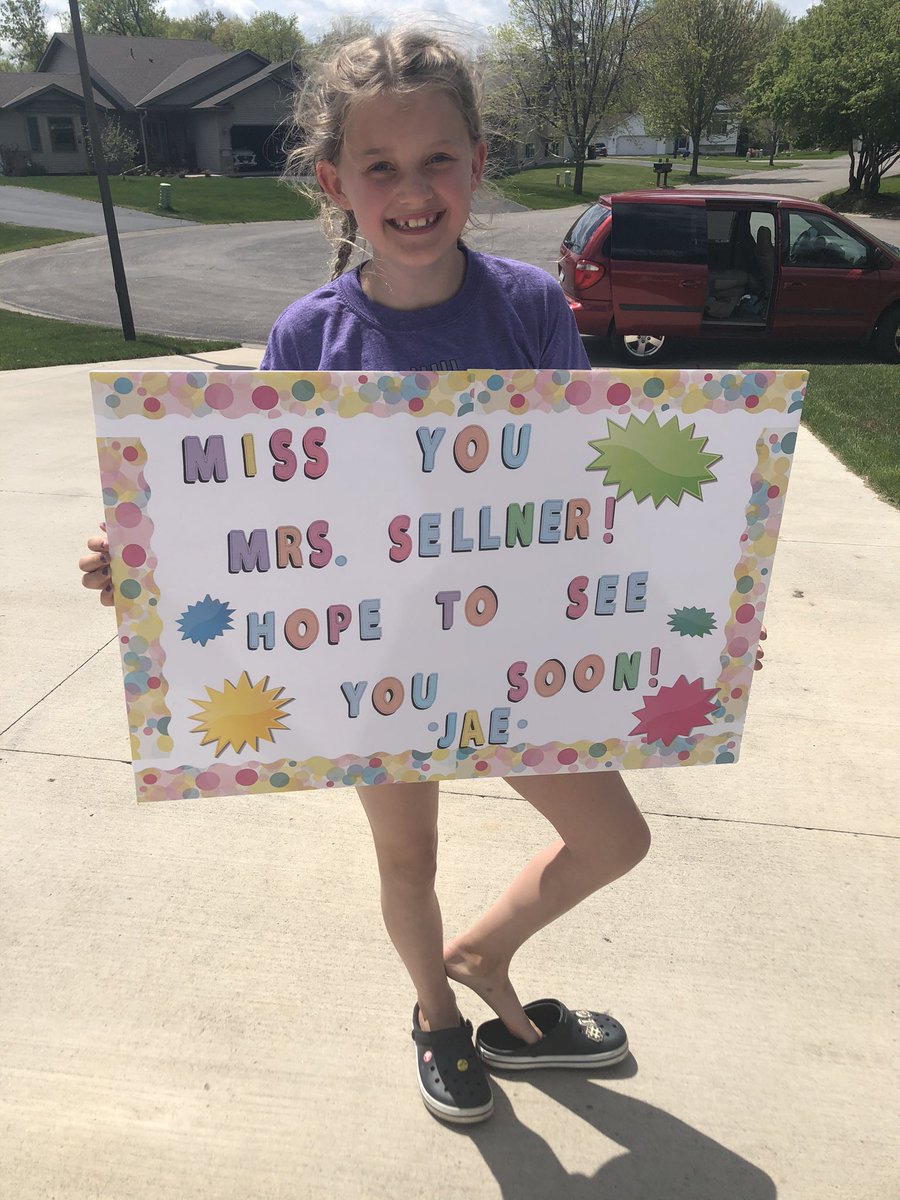 MISS YOU
MRS. SELLNER!
HOPE TO SEE
YOU SOON!
•JAE•